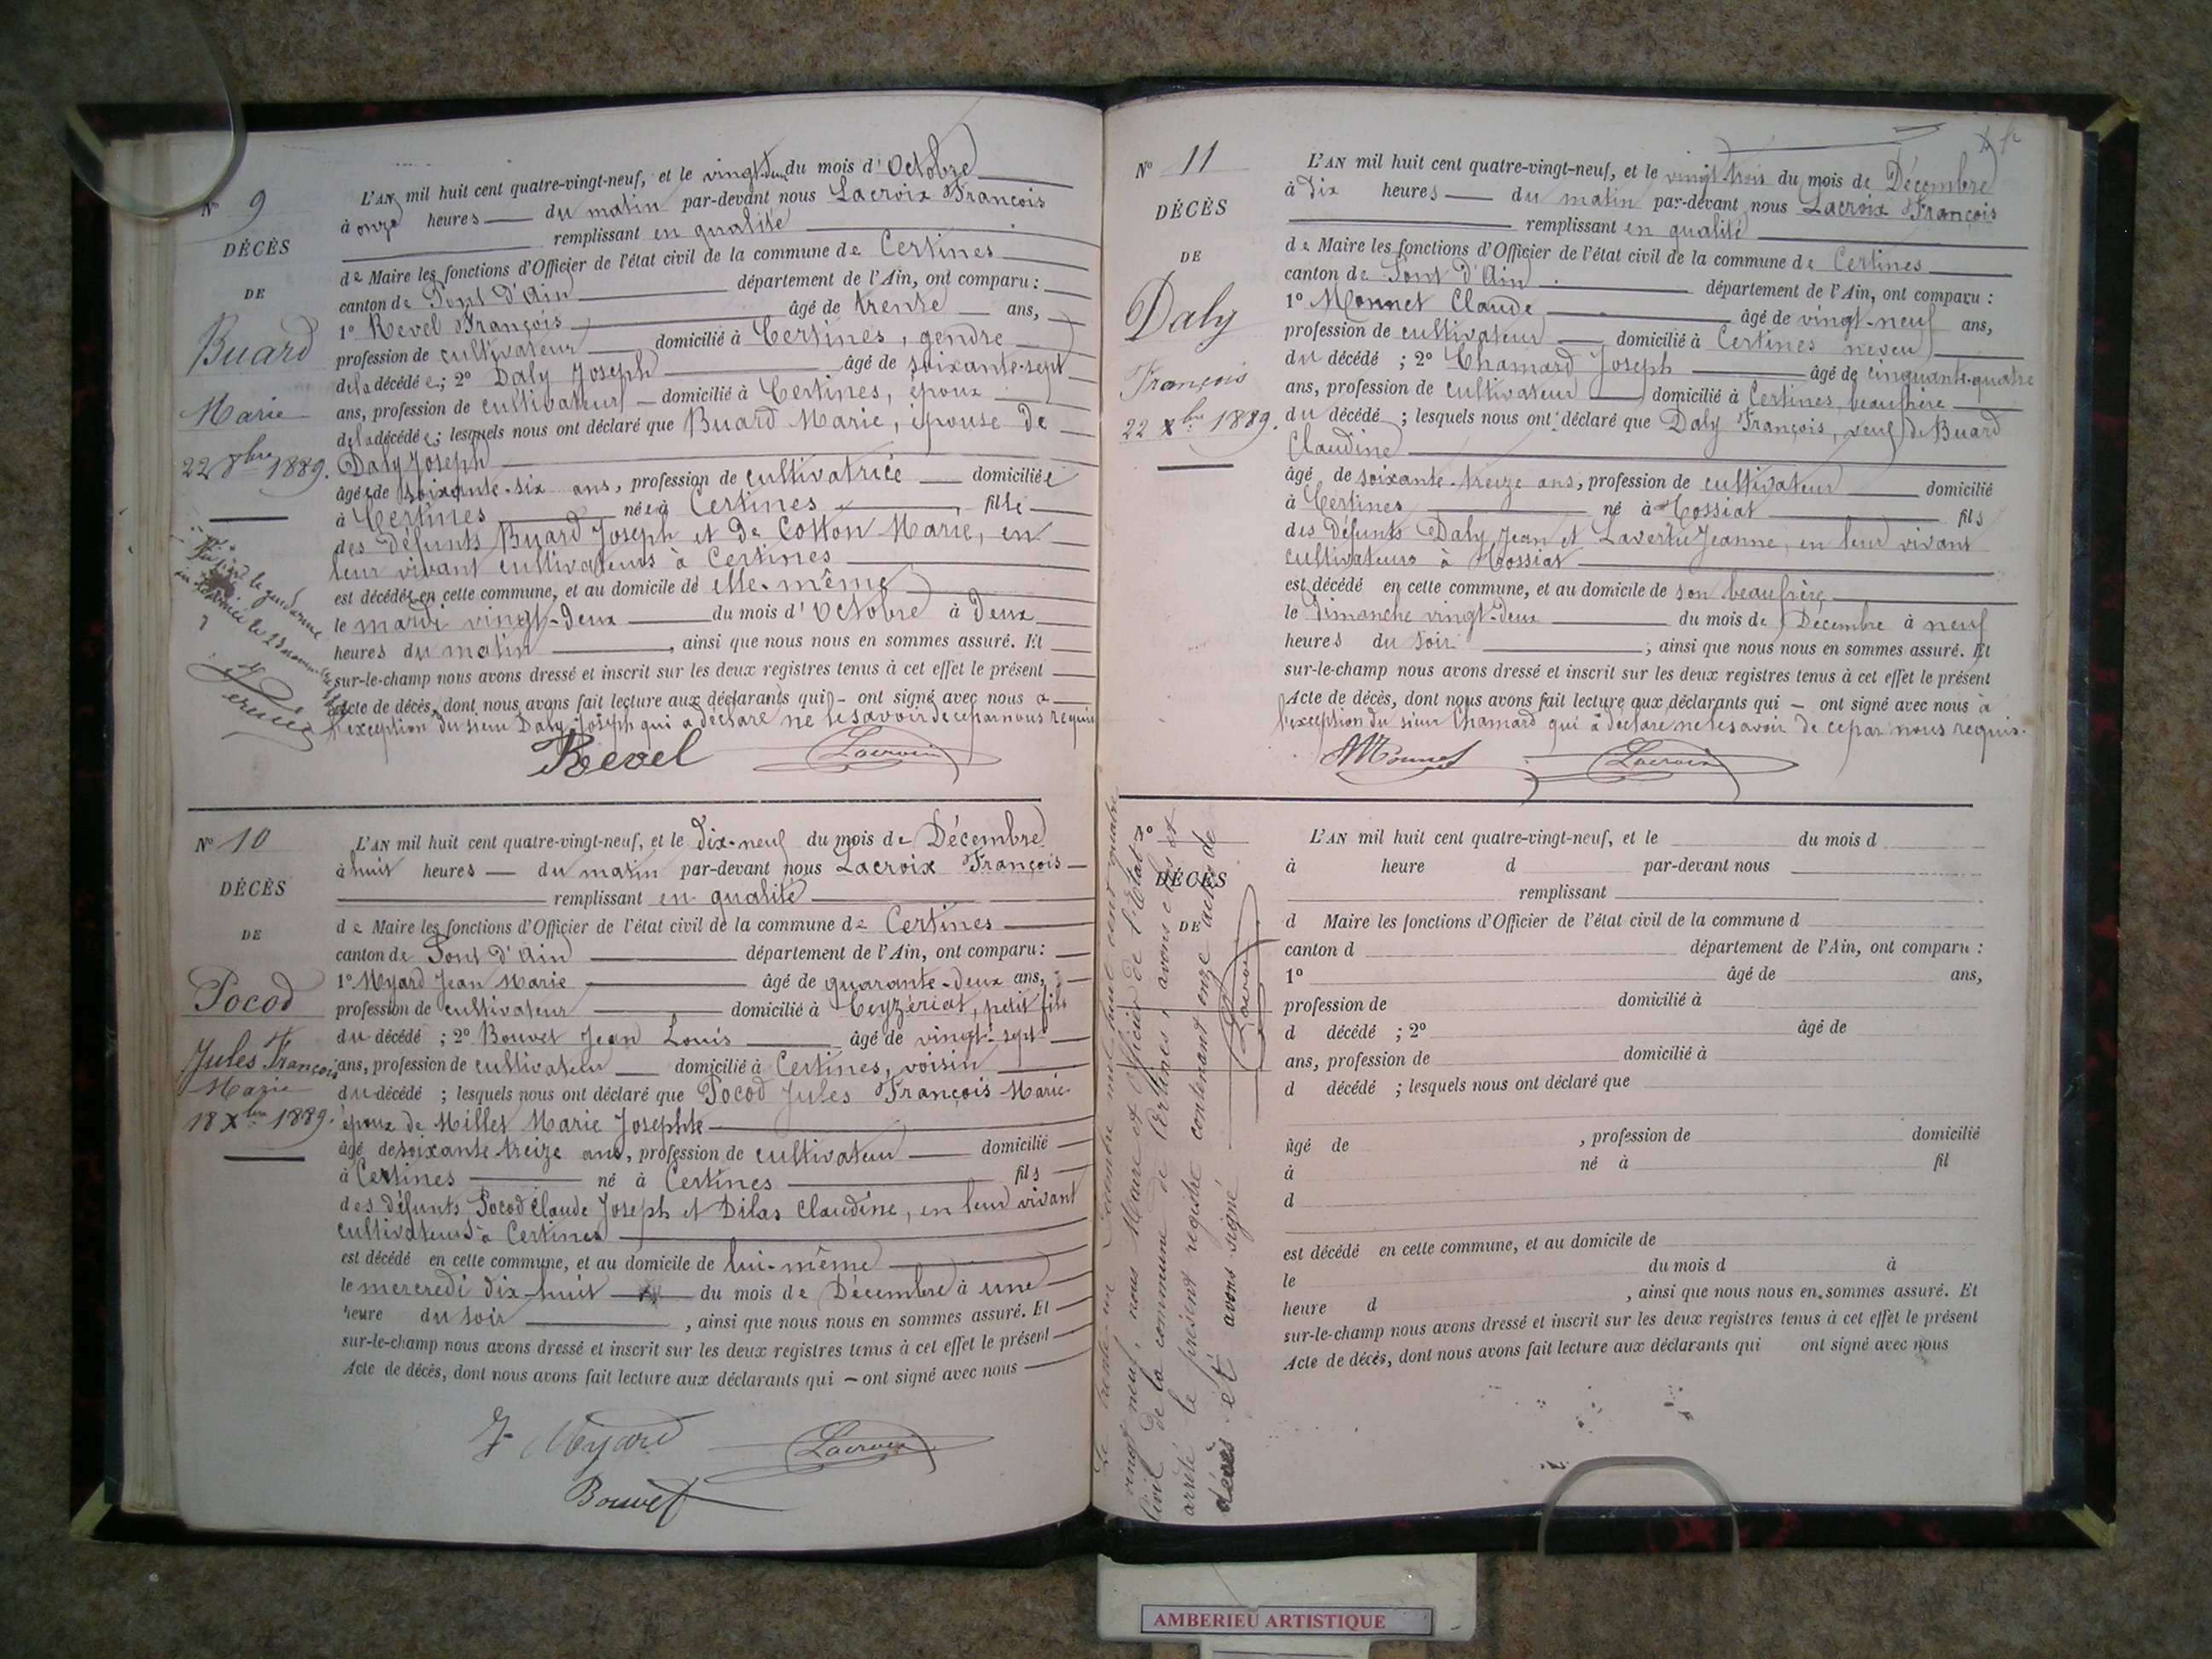 N° 9
DÉCÈS
DE
Buard
Marie
22 8bre 1889.
L'AN mil huit cent quatre-vingt-neuf, et le vingt-deux du mois d'Octobre
à onze heures du matin par-devant nous Lacroix François
remplissant en qualité
de Maire les fonctions d'Officier de l'état civil de la commune de Certines
canton de Pont d'Ain département de l'Ain, ont comparu :
1° Revel François âgé de trente ans,
profession de cultivateur domicilié à Certines, gendre
de la décédée ; 2° Daly Joseph âgé de soixante-sept
ans, profession de cultivateur domicilié à Certines, époux
de la décédée ; lesquels nous ont déclaré que Buard Marie, épouse de
Daly Joseph
âgée de soixante-six ans, profession de cultivatrice domiciliée
à Certines née à Certines fille
des défunts Buard Joseph et de Cotton Marie, en
leur vivant cultivateurs à Certines
est décédée en cette commune, et au domicile de elle-même
le mardi vingt-deux du mois d'Octobre à deux
heures du matin, ainsi que nous nous en sommes assuré. Et
sur-le-champ nous avons dressé et inscrit sur les deux registres tenus à cet effet le présent
Acte de décès, dont nous avons fait lecture aux déclarants qui - ont signé avec nous à
l'exception du sieur Daly Joseph qui a déclaré ne le savoir de ce par nous requis
Revel Lacroix
N° 10
DÉCÈS
DE
Pocod
Jules François
Marie
18 Xbre 1889.
L'AN mil huit cent quatre-vingt-neuf, et le dix-neuf du mois de Décembre
à huit heures du matin par-devant nous Lacroix François
remplissant en qualité
de Maire les fonctions d'Officier de l'état civil de la commune de Certines
canton de Pont d'Ain département de l'Ain, ont comparu :
1° Myard Jean Marie âgé de quarante-deux ans,
profession de cultivateur domicilié à Ceyzériat, petit fils
du décédé ; 2° Bouvet Jean Louis âgé de vingt-sept
ans, profession de cultivateur domicilié à Certines, voisin
du décédé ; lesquels nous ont déclaré que Pocod Jules François Marie
époux de Millet Marie Josephte
âgé de soixante treize ans, profession de cultivateur domicilié
à Certines né à Certines fils
des défunts Pocod Claude Joseph et Dilas Claudine, en leur vivant
cultivateurs à Certines
est décédé en cette commune, et au domicile de lui-même
le mercredi dix-huit du mois de Décembre à une
heure du soir, ainsi que nous nous en sommes assuré. Et
sur-le-champ nous avons dressé et inscrit sur les deux registres tenus à cet effet le présent
Acte de décès, dont nous avons fait lecture aux déclarants qui - ont signé avec nous
Myard Lacroix
Bouvet
N° 11
DÉCÈS
DE
Daly
François
22 Xbre 1889.
L'AN mil huit cent quatre-vingt-neuf, et le vingt-trois du mois de Décembre
à dix heures du matin par-devant nous Lacroix François
remplissant en qualité
de Maire les fonctions d'Officier de l'état civil de la commune de Certines
canton de Pont d'Ain département de l'Ain, ont comparu :
1° Monnet Claude âgé de vingt-neuf ans,
profession de cultivateur domicilié à Certines neveu
du décédé ; 2° Chamard Joseph âgé de cinquante-quatre
ans, profession de cultivateur domicilié à Certines, beaufrère
du décédé ; lesquels nous ont déclaré que Daly François, veuf de Buard
Claudine
âgé de soixante-treize ans, profession de cultivateur domicilié
à Certines né à Hossiat fils
des défunts Daly Jean et Jeanne, en leur vivant
cultivateurs à Hossiat
est décédé en cette commune, et au domicile de son beaufrère
le Dimanche vingt-deux du mois de Décembre à neuf
heures du soir ; ainsi que nous nous en sommes assuré. Et
sur-le-champ nous avons dressé et inscrit sur les deux registres tenus à cet effet le présent
Acte de décès, dont nous avons fait lecture aux déclarants qui - ont signé avec nous à
l'exception du sieur Chamard qui a déclaré ne le savoir de ce par nous requis.
Monnet Lacroix
N°
DÉCÈS
DE
L'AN mil huit cent quatre-vingt-neuf, et le du mois d
à heure d par-devant nous
remplissant
d Maire les fonctions d'Officier de l'état civil de la commune d
canton d département de l'Ain, ont comparu :
1° âgé de ans,
profession de domicilié à
d décédé ; 2° âgé de
ans, profession de domicilié à
d décédé ; lesquels nous ont déclaré que
âgé de , profession de domicilié
à né à fil
d
est décédé en cette commune, et au domicile de
le du mois d à
heure d , ainsi que nous nous en sommes assuré. Et
sur-le-champ nous avons dressé et inscrit sur les deux registres tenus à cet effet le présent
Acte de décès, dont nous avons fait lecture aux déclarants qui ont signé avec nous
Le trente-un Décembre mil huit cent quatre
vingt neuf, nous Maire et Officier de l'Etat
civil de la commune de Certines, avons clos et
arrêté le présent registre contenant onze actes de
décès et avons signé
Lacroix
AMBERIEU ARTISTIQUE